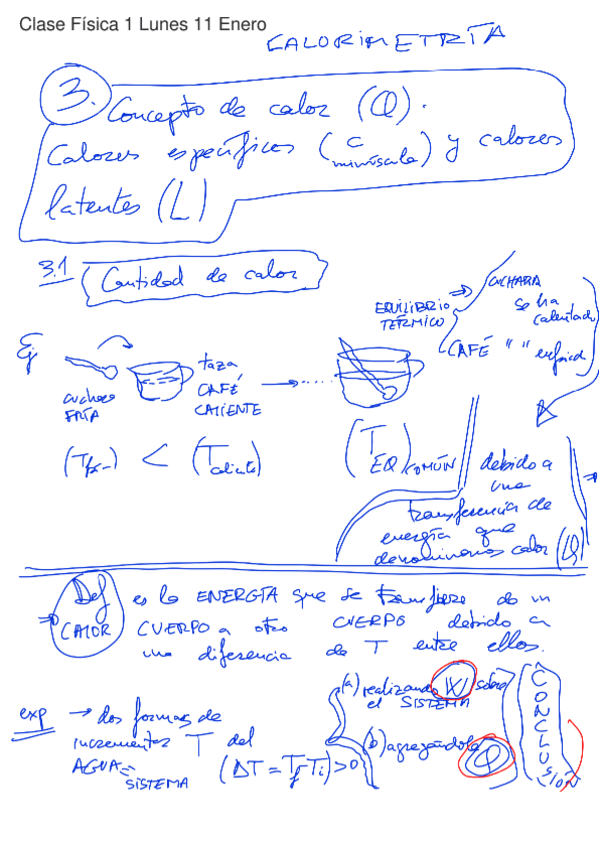 Clase Física 1 Lunes 11 Enero
CALORIMETRÍA
3. Concepto de calor (Q).
Calores específicos (c minúscula) y calores
latentes (L)
3.1 Cantidad de calor
Ej
cuchara
FRÍA
taza
CAFÉ
CALIENTE
EQUILIBRIO
TÉRMICO
CUCHARA
se ha
calentado
CAFÉ " " enfriado
(T fría) < (T caliente)
(T EQ) COMÚN
debido a
una
transferencia de
energía que
denominamos calor (Q)
Def
CALOR
es la ENERGÍA que se transfiere de un
CUERPO a otro CUERPO debido a
una diferencia de T entre ellos.
exp → dos formas de
incrementar T del
AGUA = SISTEMA
(ΔT = Tf - Ti) > 0
(a) realizando W sobre
el SISTEMA
(b) agregándole Q
CONCLUSIÓN